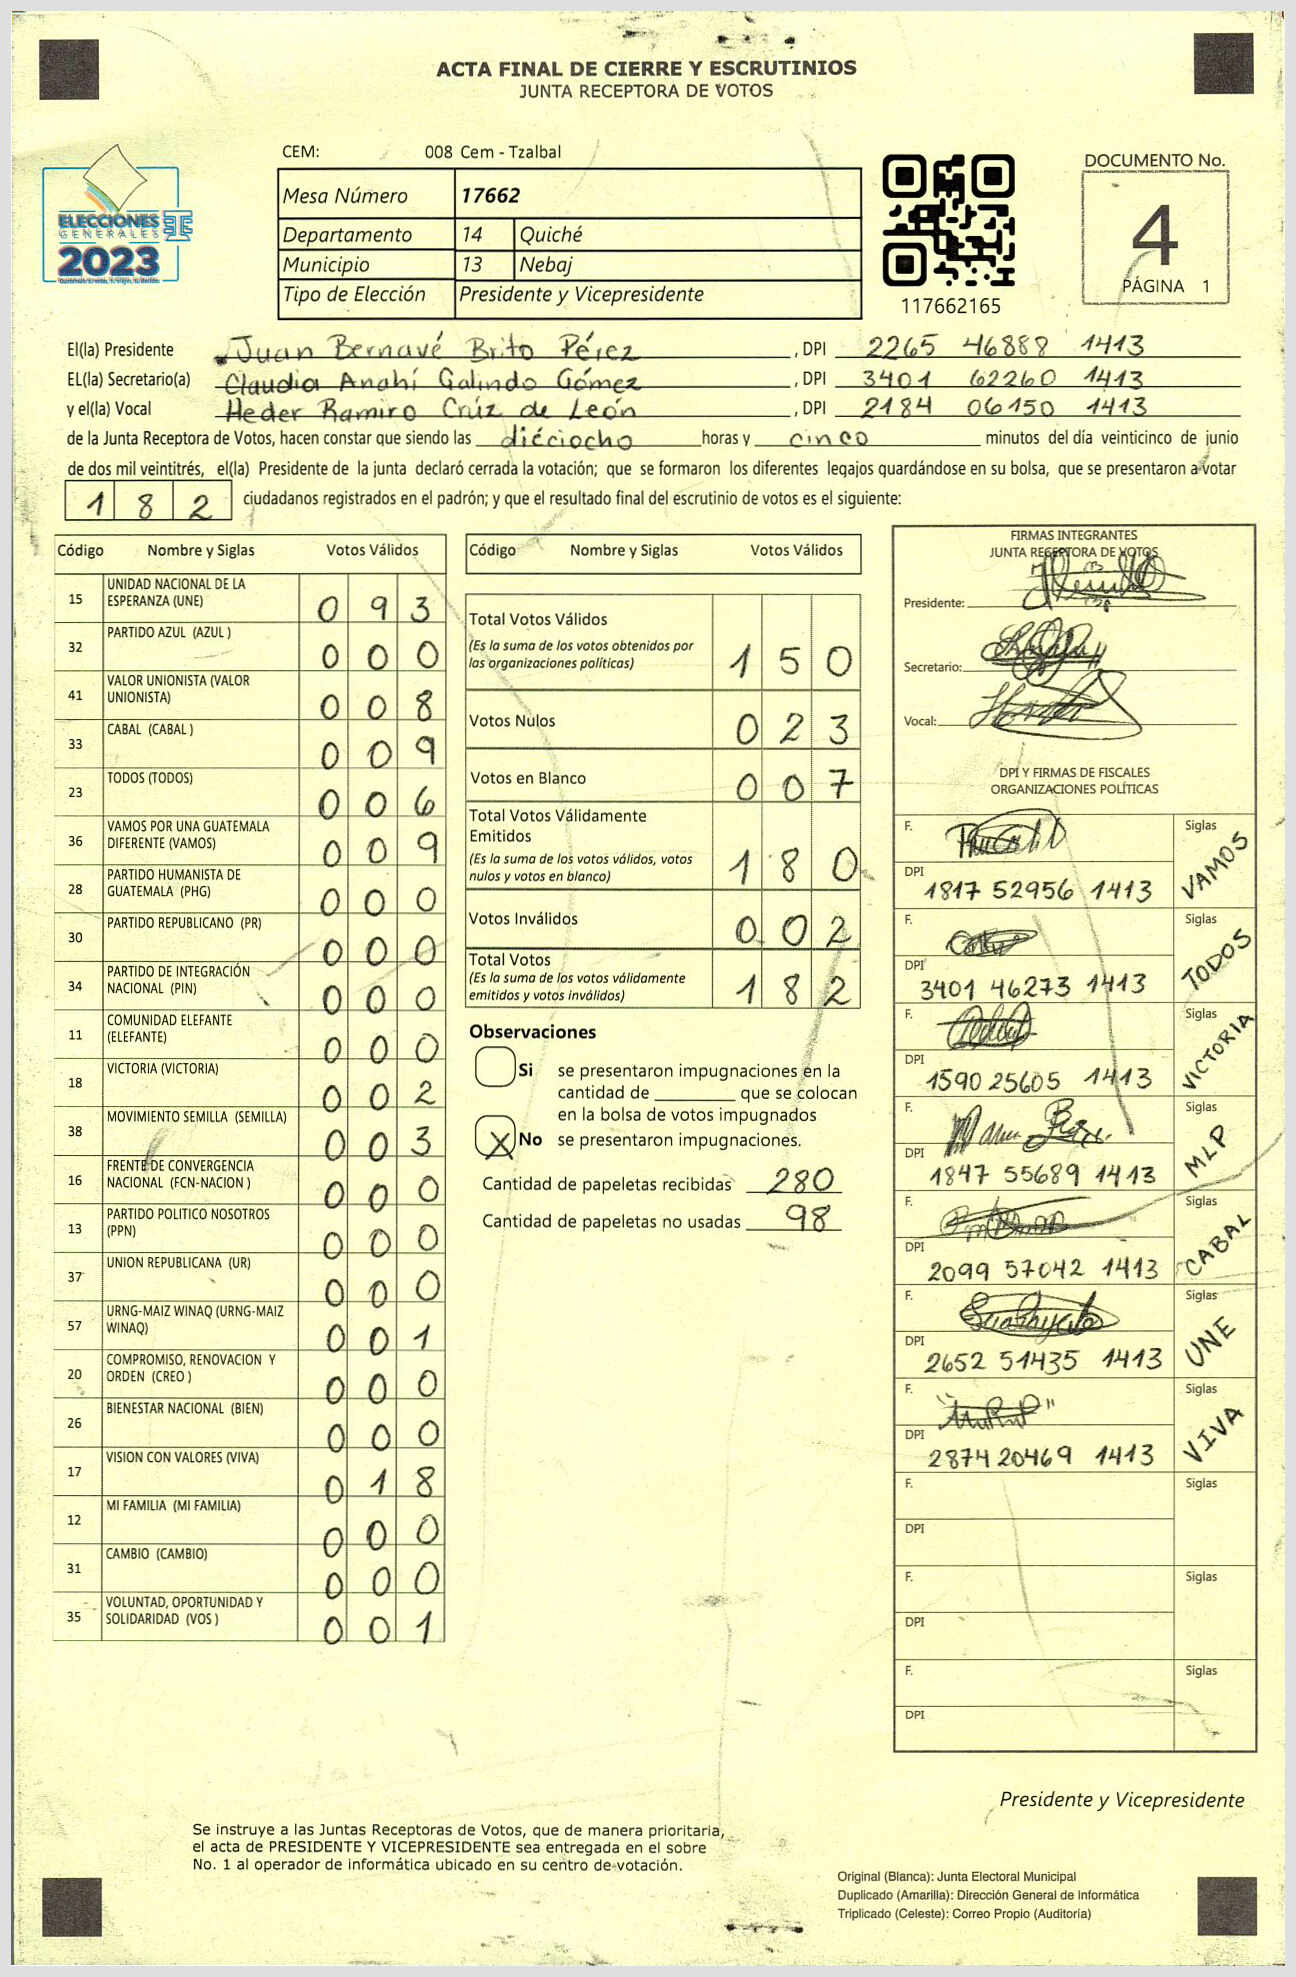 ACTA FINAL DE CIERRE Y ESCRUTINIOS
JUNTA RECEPTORA DE VOTOS
CEM: 008 Cem - Tzalbal
ELECCIONES
GENERALES
2023
Mesa Número 17662
Departamento 14 Quiché
Municipio 13 Nebaj
Tipo de Elección Presidente y Vicepresidente
117662165
DOCUMENTO No.
4
PÁGINA 1
El(la) Presidente Juan Bernavé Brito Pérez , DPI 2265 46888 1413
EL(la) Secretario(a) Claudia Anahí Galindo Gómez , DPI 3401 62260 1413
y el(la) Vocal Heder Ramiro Crúz de León , DPI 2184 06150 1413
de la Junta Receptora de Votos, hacen constar que siendo las diéciocho horas y cinco minutos del día veinticinco de junio
de dos mil veintitrés, el(la) Presidente de la junta declaró cerrada la votación; que se formaron los diferentes legajos guardándose en su bolsa, que se presentaron a votar
1 8 2 ciudadanos registrados en el padrón; y que el resultado final del escrutinio de votos es el siguiente:
Código Nombre y Siglas Votos Válidos
15 UNIDAD NACIONAL DE LA ESPERANZA (UNE) 0 9 3
32 PARTIDO AZUL (AZUL ) 0 0 0
41 VALOR UNIONISTA (VALOR UNIONISTA) 0 0 8
33 CABAL (CABAL ) 0 0 9
23 TODOS (TODOS) 0 0 6
36 VAMOS POR UNA GUATEMALA DIFERENTE (VAMOS) 0 0 9
28 PARTIDO HUMANISTA DE GUATEMALA (PHG) 0 0 0
30 PARTIDO REPUBLICANO (PR) 0 0 0
34 PARTIDO DE INTEGRACIÓN NACIONAL (PIN) 0 0 0
11 COMUNIDAD ELEFANTE (ELEFANTE) 0 0 0
18 VICTORIA (VICTORIA) 0 0 2
38 MOVIMIENTO SEMILLA (SEMILLA) 0 0 3
16 FRENTE DE CONVERGENCIA NACIONAL (FCN-NACION ) 0 0 0
13 PARTIDO POLITICO NOSOTROS (PPN) 0 0 0
37 UNION REPUBLICANA (UR) 0 0 0
57 URNG-MAIZ WINAQ (URNG-MAIZ WINAQ) 0 0 1
20 COMPROMISO, RENOVACION Y ORDEN (CREO ) 0 0 0
26 BIENESTAR NACIONAL (BIEN) 0 0 0
17 VISION CON VALORES (VIVA) 0 1 8
12 MI FAMILIA (MI FAMILIA) 0 0 0
31 CAMBIO (CAMBIO) 0 0 0
35 VOLUNTAD, OPORTUNIDAD Y SOLIDARIDAD (VOS ) 0 0 1
Código Nombre y Siglas Votos Válidos
Total Votos Válidos
(Es la suma de los votos obtenidos por
las organizaciones políticas) 1 5 0
Votos Nulos 0 2 3
Votos en Blanco 0 0 7
Total Votos Válidamente
Emitidos
(Es la suma de los votos válidos, votos
nulos y votos en blanco) 1 8 0
Votos Inválidos 0 0 2
Total Votos
(Es la suma de los votos válidamente
emitidos y votos inválidos) 1 8 2
Observaciones
Si se presentaron impugnaciones en la
cantidad de ________ que se colocan
en la bolsa de votos impugnados
X No se presentaron impugnaciones.
Cantidad de papeletas recibidas 280
Cantidad de papeletas no usadas 98
FIRMAS INTEGRANTES
JUNTA RECEPTORA DE VOTOS
Presidente:
Secretario:
Vocal:
DPI Y FIRMAS DE FISCALES
ORGANIZACIONES POLÍTICAS
F. Siglas VAMOS
DPI 1817 52956 1413
F. Siglas TODOS
DPI 3401 46273 1413
F. Siglas VICTORIA
DPI 1590 25605 1413
F. Siglas MLP
DPI 1847 55689 1413
F. Siglas CABAL
DPI 2099 57042 1413
F. Siglas UNE
DPI 2652 51435 1413
F. Siglas VIVA
DPI 2874 20469 1413
F. Siglas
DPI
F. Siglas
DPI
F. Siglas
DPI
Presidente y Vicepresidente
Se instruye a las Juntas Receptoras de Votos, que de manera prioritaria,
el acta de PRESIDENTE Y VICEPRESIDENTE sea entregada en el sobre
No. 1 al operador de informática ubicado en su centro de votación.
Original (Blanca): Junta Electoral Municipal
Duplicado (Amarilla): Dirección General de Informática
Triplicado (Celeste): Correo Propio (Auditoría)